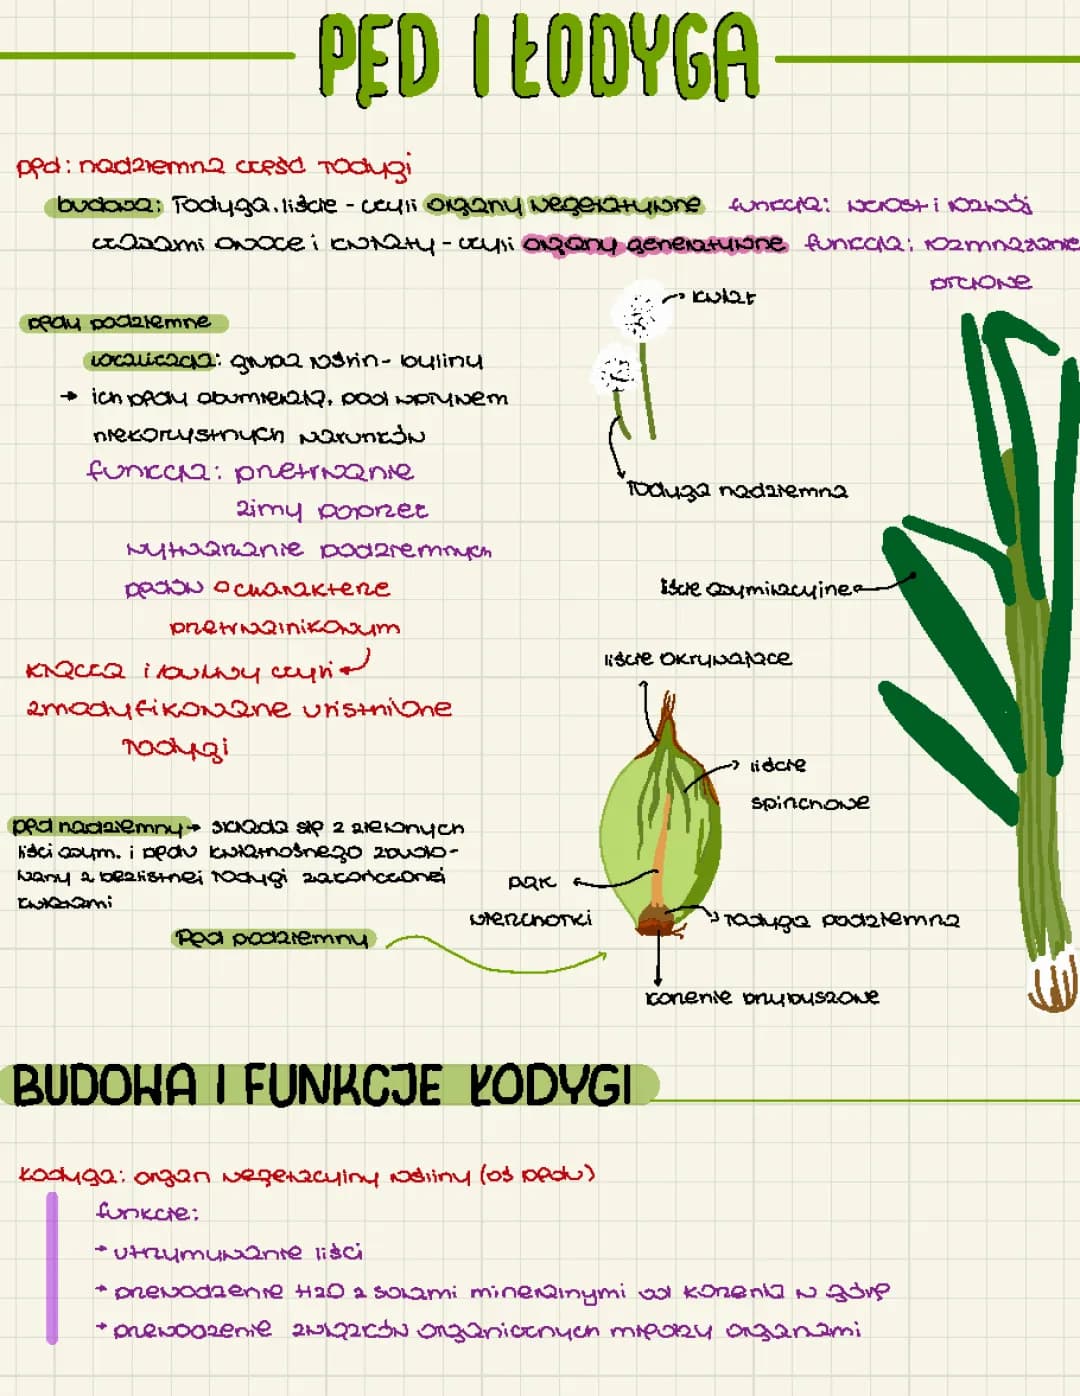 PĘD I ŁODYGA
pęd: nadziemna część łodygi
budowa: łodyga, liście - czyli organy wegetatywne funkcja: wzrost i rozwój
czasami owoce i kwiaty - czyli organy generatywne funkcja: rozmnażanie
płciowe
kwiat
pędy podziemne
lokalizacja: grupa roślin - byliny
→ ich pędy obumierają, pod wpływem
niekorzystnych warunków
funkcja: przetrwanie
zimy poprzez
wytwarzanie podziemnych
pędów o charakterze
przetrwalnikowym
kłącza i bulwy czyli
zmodyfikowane ulistnione
łodygi
łodyga nadziemna
liście asymilacyjne
liście okrywające
liście
spichrzowe
pąk
wierzchołki
łodyga podziemna
korzenie przybyszowe
pęd nadziemny → składa się z zielonych
liści asym. i pędu kwiatnośnego zbudo-
wany z bezlistnej łodygi zakończonej
kwiatami
Pęd podziemny
BUDOWA I FUNKCJE ŁODYGI
Łodyga: organ wegetacyjny rośliny (oś pędu)
funkcje:
→ utrzymywanie liści
→ przewodzenie H2O z solami mineralnymi od korzenia w górę
→ przewodzenie związków organicznych między organami